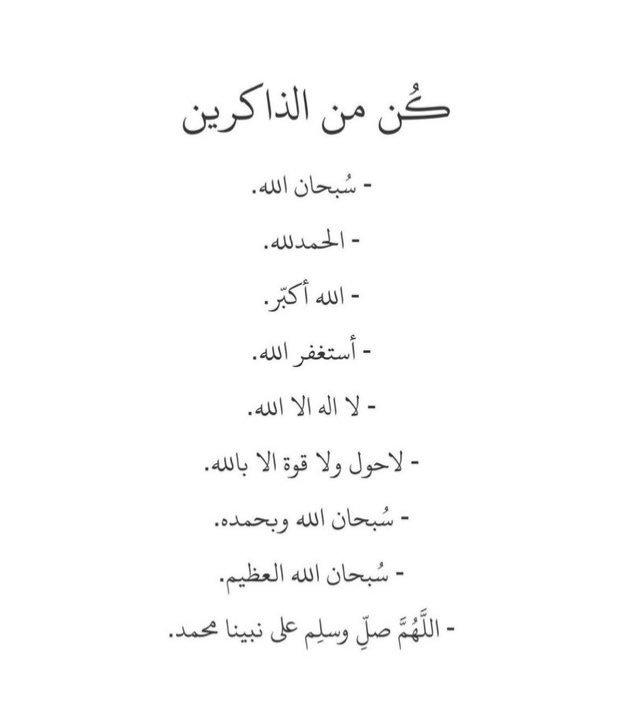 كُن من الذاكرين
- سُبحان الله.
- الحمدلله.
- الله أكبّر.
- أستغفر الله.
- لا اله الا الله.
- لاحول ولا قوة الا بالله.
- سُبحان الله وبحمده.
- سُبحان الله العظيم.
- اللَّهُمَّ صلِّ وسلِم على نبينا محمد.